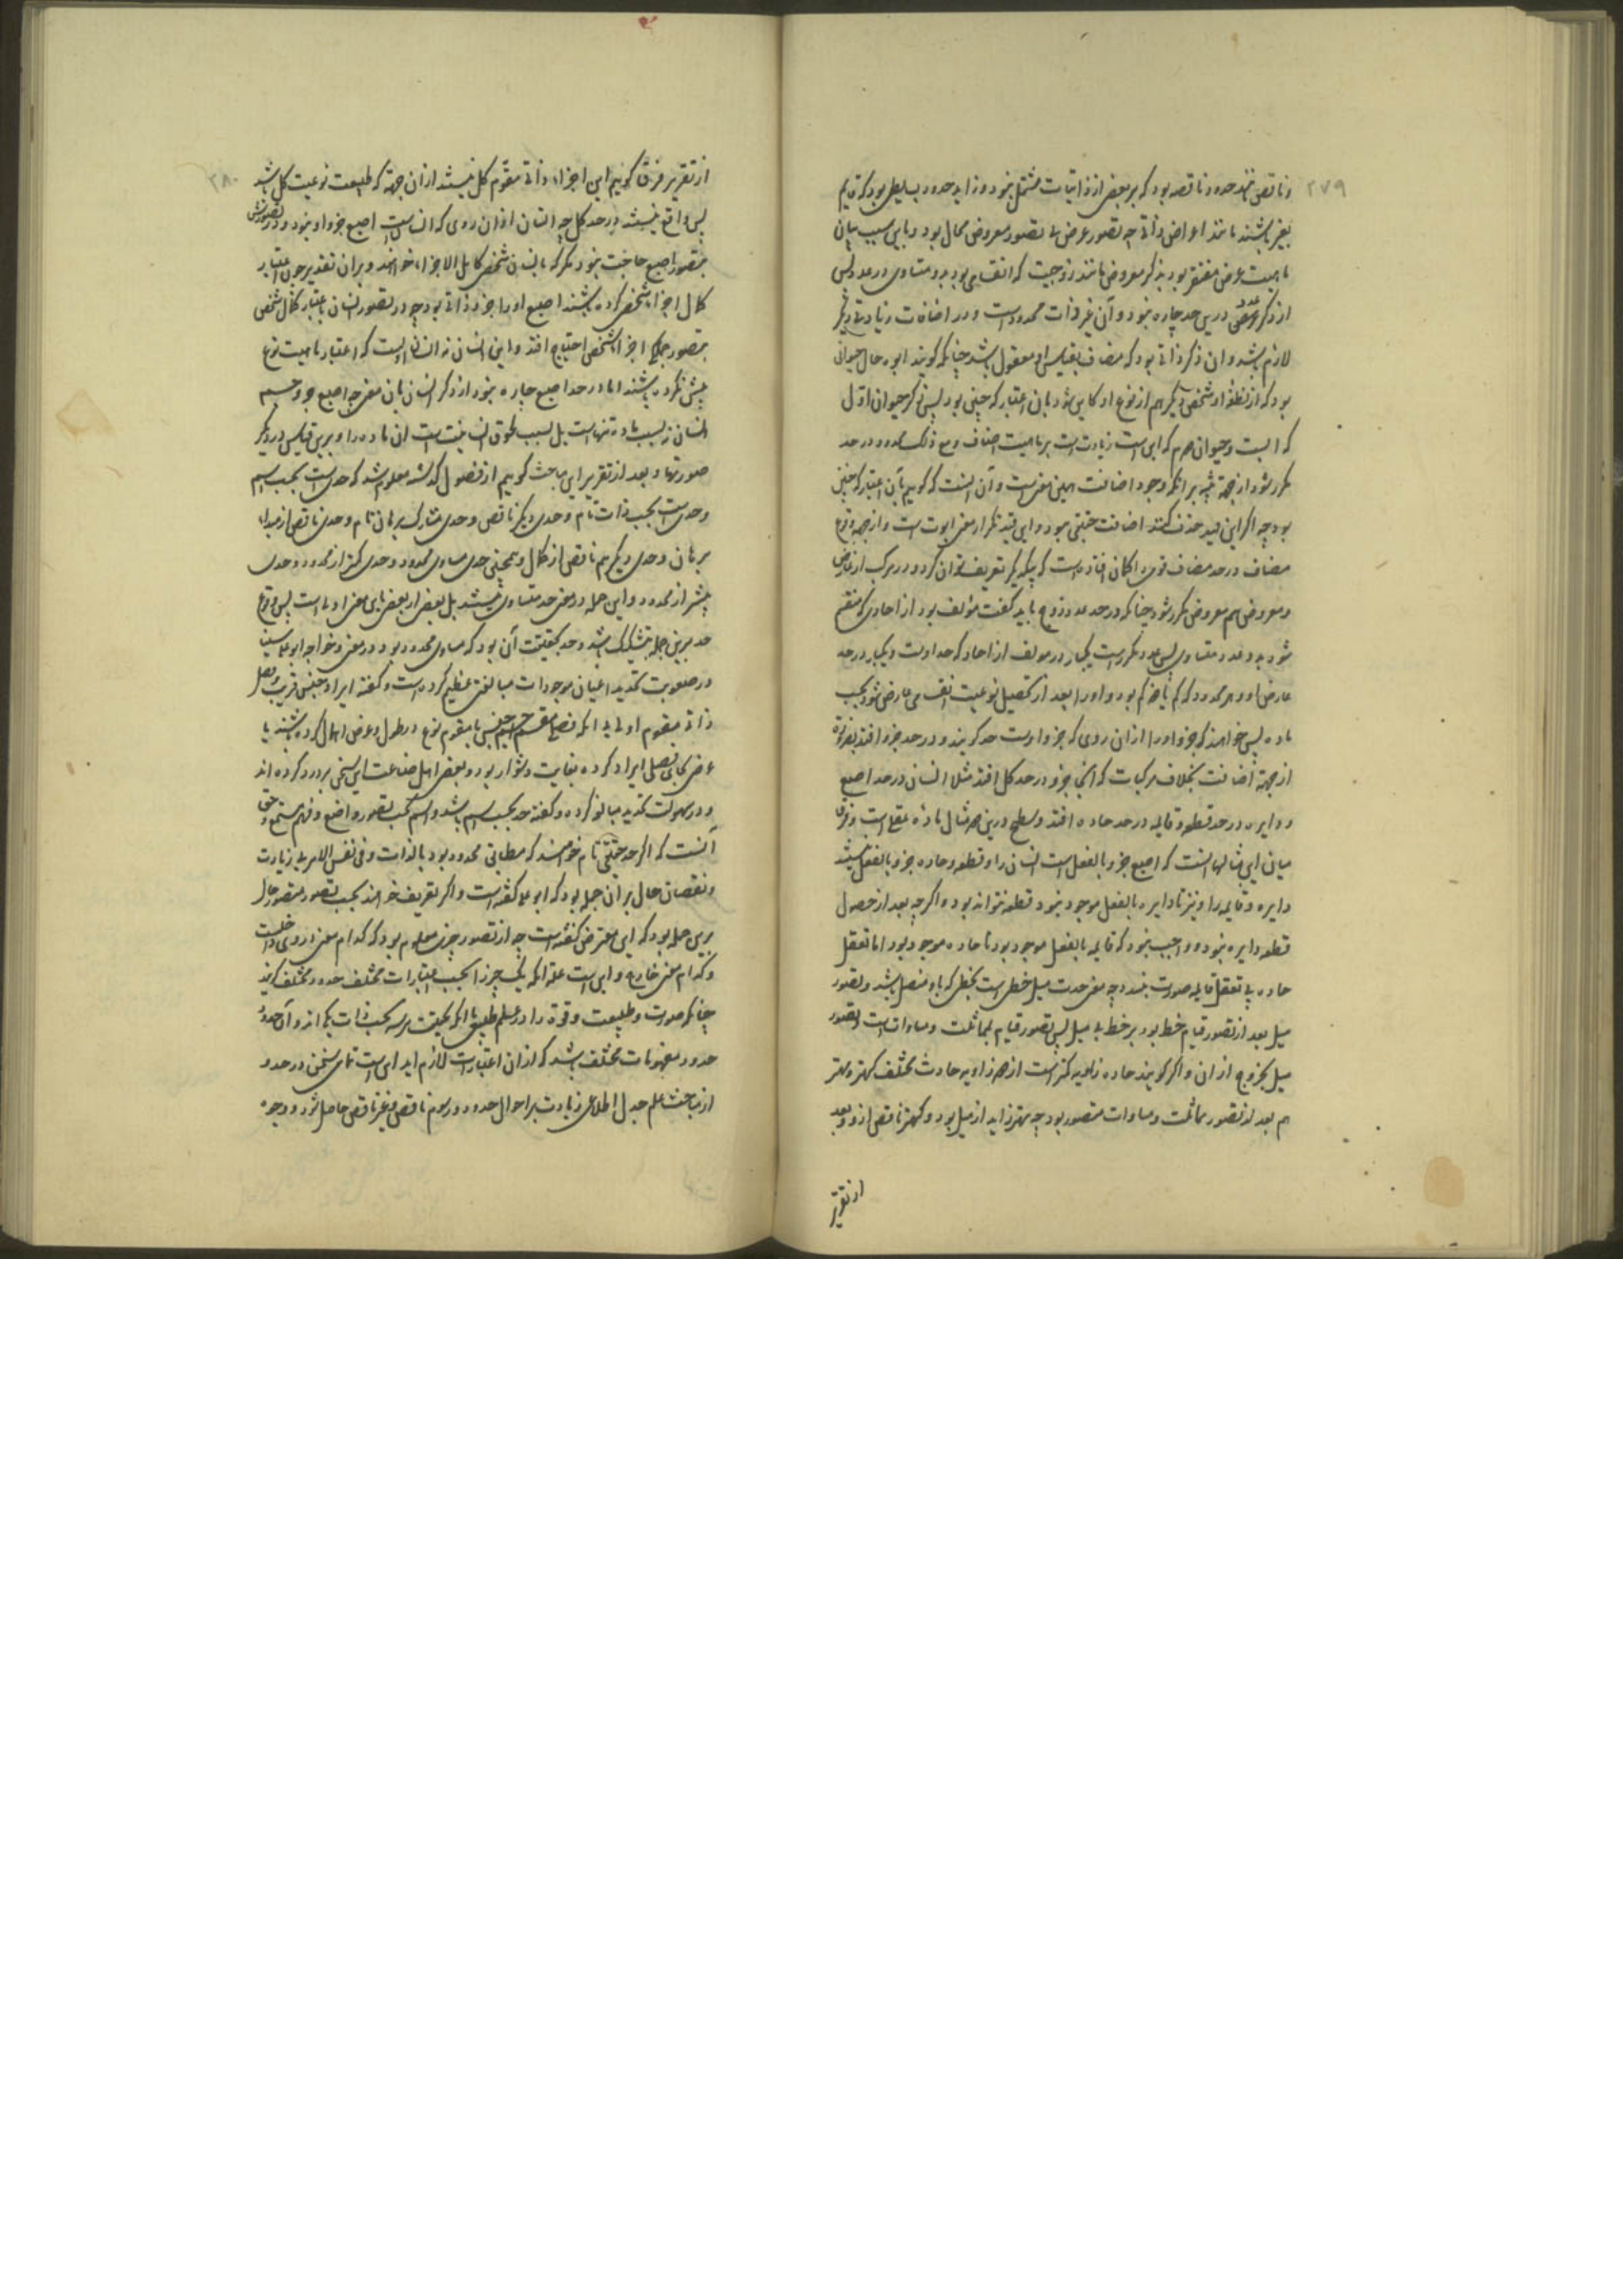 ۲۷۹
و ناقص مهند حدود ناقصه بود که بر بعضی از ذاتیات مشتمل نبود و زاید حدود بسایطی بود که قایم
بغیر باشند مانند اعراض ذاتی چه تصور عرض بی تصور معروض محال بود و باین سبب بیان
ماهیت عرض مفتقر بود بذکر معروض مانند زوجیت که انقسامی بود بدو متساوی در عدد پس
از ذکر عدد درین حد چاره نبود و آن غیر ذات محدودست و در اضافات زیادتی دیگر
لازم باشد و آن ذکر ذاتی بود که مضاف بقیاس با او معقول باشد چنانکه گویند ابوه حال حیوانی
بود که از نطفه او شخصی دیگر هم از نوع او کاین شود بآن اعتبار که چنین بود پس ذکر حیوان اول
که ابست و حیوان دوم که ابن است زیادتست بر ماهیت مضاف و مع ذلک محدود در حد
مکرر شود از جهت تنبیه بر آنکه وجود اضافت همین معنی است و آن آنست که گوییم بآن اعتبار که چنین
بود چه اگر این قید حذف کنند اضافت حقیقی نبود و این قید تکرار معنی ابوت است و از جهت وقوع
مضاف در حد مضاف توهم امکان افتاده است که بیکدیگر تعریف توان کرد و در مرکب از عارض
و معروض هم معروض مکرر شود چنانکه در حد عدد زوج باید گفت مؤلف بود از احادی که منقسم
شود بدو عدد متساوی پس عدد مکررست یکبار در مولف از احاد که حد اوست و یکبار در حد
عارض او و هر محدود که کم یا جزو کم بود و او را بعد از تحصیل نوعیت انقسامی عارض شود بحسب
ماده پس خواهند که جزو او را از آن روی که جزو اوست حد گویند و در حد جزو افتد بضرورت
از جهت اضافت بخلاف مرکبات که آنجا جزو در حد کل افتد مثلا انسان در حد اصبع
و دایره در حد قطعه و قایمه در حد حاده افتد و سطح درین دو مثال ماده عقلی است و فرق
میان این مثالها آنست که اصبع جزو بالفعل است انسان را و قطعه و حاده جزو بالفعل نیستند
دایره و قایمه را و نیز تا دایره بالفعل موجود نبود قطعه نتواند بود و اگر چه بعد از حصول
قطعه دایره نبود و واجب نبود که قایمه بالفعل موجود بود تا حاده موجود بود اما تعقل
حاده بی تعقل قایمه صورت نبندد چه معنی حدت میل خطی است بخطی که باو متصل باشد و تصور
میل بعد از تصور قیام خط بود بر خط بی میل پس تصور قیام بمماثلت و مساوات است و تصور
میل بخروج از آن و اگر گویند حاده زاویه کمتر است از دو زاویه حادث مختلف کهتر و مهتر
هم بعد از تصور مماثلت و مساوات متصور بود چه مهتر زاید از میل بود و کهتر ناقص ازو و بعد
از تقریر
۲۸۰
از تقریر فرق گوییم این اجزاء ذاتی مقوم کل نیستند از آن جهت که طبیعت نوعیت کل باشد
پس واقع نیستند در حد کل چه انسان از آن روی که انسانست اصبع جزو او نبود و در تصورش
بتصور اصبع حاجت نبود مگر که بانسان شخصی کامل الاجزاء خواهند و بر آن تقدیر چون اعتبار
کمال اجزاء شخص کرده باشند اصبع او را جزو ذاتی بود چه در تصور انسان باعتبار کمال شخصی
بتصور جمله اجزاء شخصی احتیاج افتد و این انسان نه انسانی است که اعتبار ماهیت نوع
بیش نکرده باشند اما در حد اصبع چاره نبود از ذکر انسان بآن معنی چه اصبع جزو جسم
انسان نه بسبب ماده تنهاست بل بسبب لحوق انسانیت است آن ماده را و برین قیاس در دیگر
صورتها و بعد از تقریر این مباحث گوییم از فصول گذشته معلوم شد که حدی است بحسب اسم
و حدی است بحسب ذات تام و حدی دیگر ناقص و حدی مشارک برهان تام و حدی ناقص از مبداء
برهان و حدی دیگر هم ناقص از کمال و همچنین حدی مساوی محدود و حدی کمتر از محدود و حدی
بیشتر از محدود و این جمله در معنی حد متساوی نیستند بل بعضی از بعضی باین معنی اولی است پس وقوع
حد برین جمله بتشکیک باشد و حد بحقیقت آن بود که مساوی محدود بود در معنی و خواجه ابو علی سینا
در صعوبت تحدید اعیان موجودات مبالغتی عظیم کرده است و گفته ایراد جنس قریب و فصل
ذاتی مقوم اولی بی آنکه فصل مقسم جنس یا مقوم نوع در طول و عرض اهمال کرده باشند یا
عرض بجای فصل ایراد کرده بغایت دشوار بود و بعضی اهل صناعت این سخن برو رد کرده اند
و در سهولت تحدید مبالغه کرده و گفته حد بحسب اسم باشد و اسم بحسب تصور واضع و فهم مستمع و حق
آنست که اگر حد حقیقی تام خواهند که مطابق محدود بود بالذات و فی نفس الامر بی زیادت
و نقصان حال بر آن جمله بود که ابو علی گفته است و اگر تعریف خواهند بحسب تصور متصور حال
برین جمله بود که این معترض گفته است چه از تصور چیزی معلوم بود که کدام معنی در وی داخلست
و کدام معنی خارج و این است علت آنکه یک چیز را بحسب اعتبارات مختلف حدود مختلف گویند
چنانکه صورت و طبیعت و قوت را در علم طبیعی با آنکه بحقیقت هر سه بحسب ذات یکی اند و آن حدود
حدود مفهومات مختلف باشد که از آن اعتبارات لازم آید این است تمامی سخن در حد و
از مباحث علم جدل اطلاعی زیادت بر احوال حدود و رسوم ناقص و غیر ناقص حاصل شود و وجوه